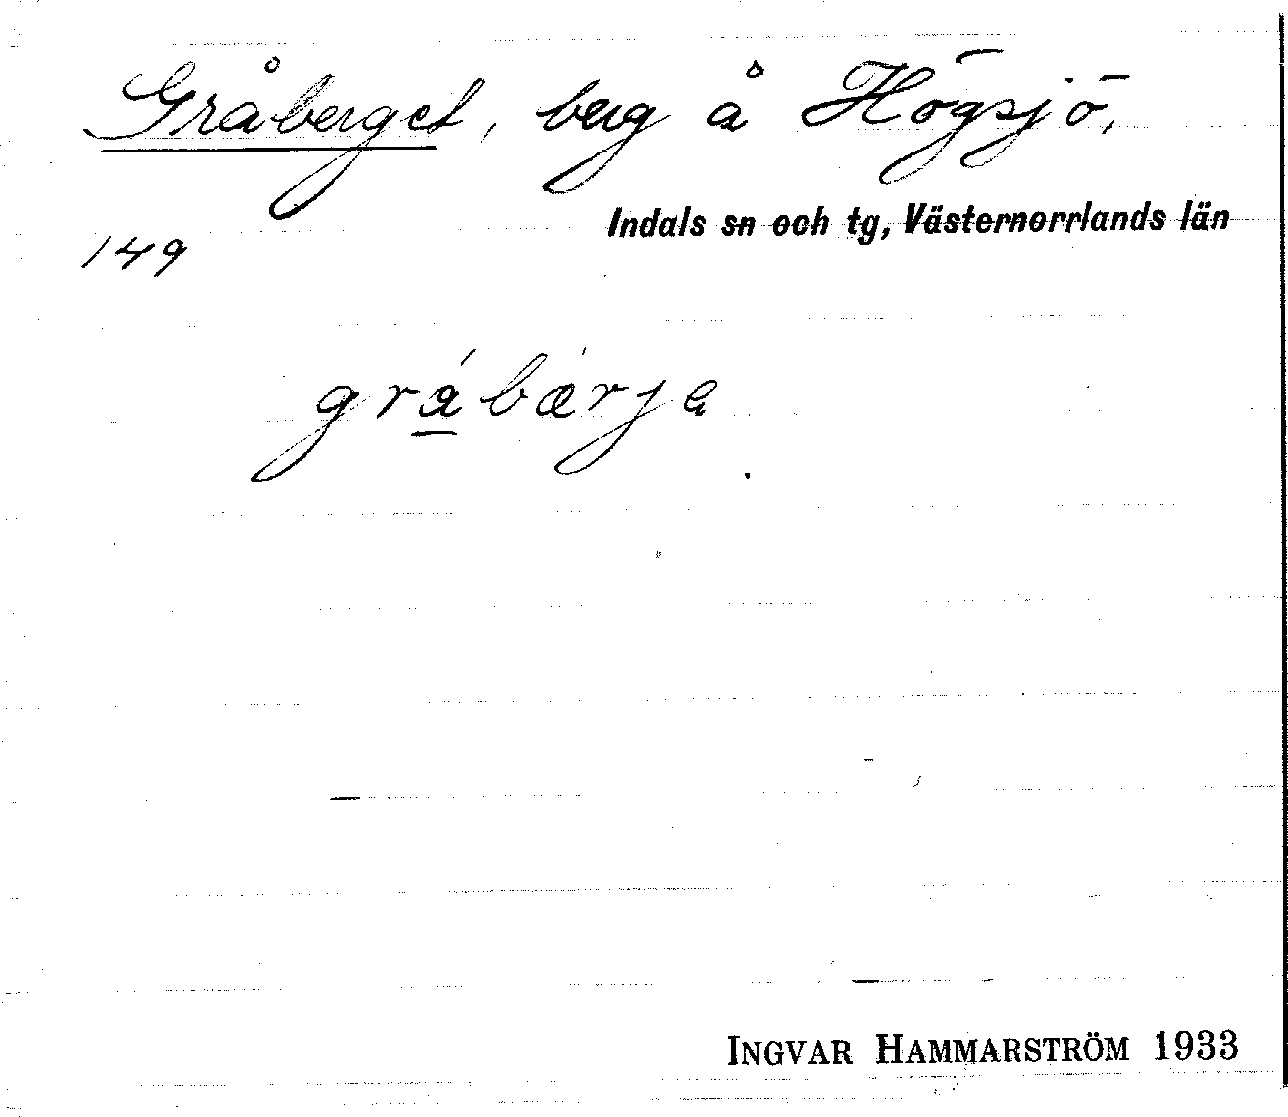 Gråberget, berg å Högsjö,
Indals sn och tg, Västernorrlands län
149
gräbærja
INGVAR HAMMARSTRÖM 1933